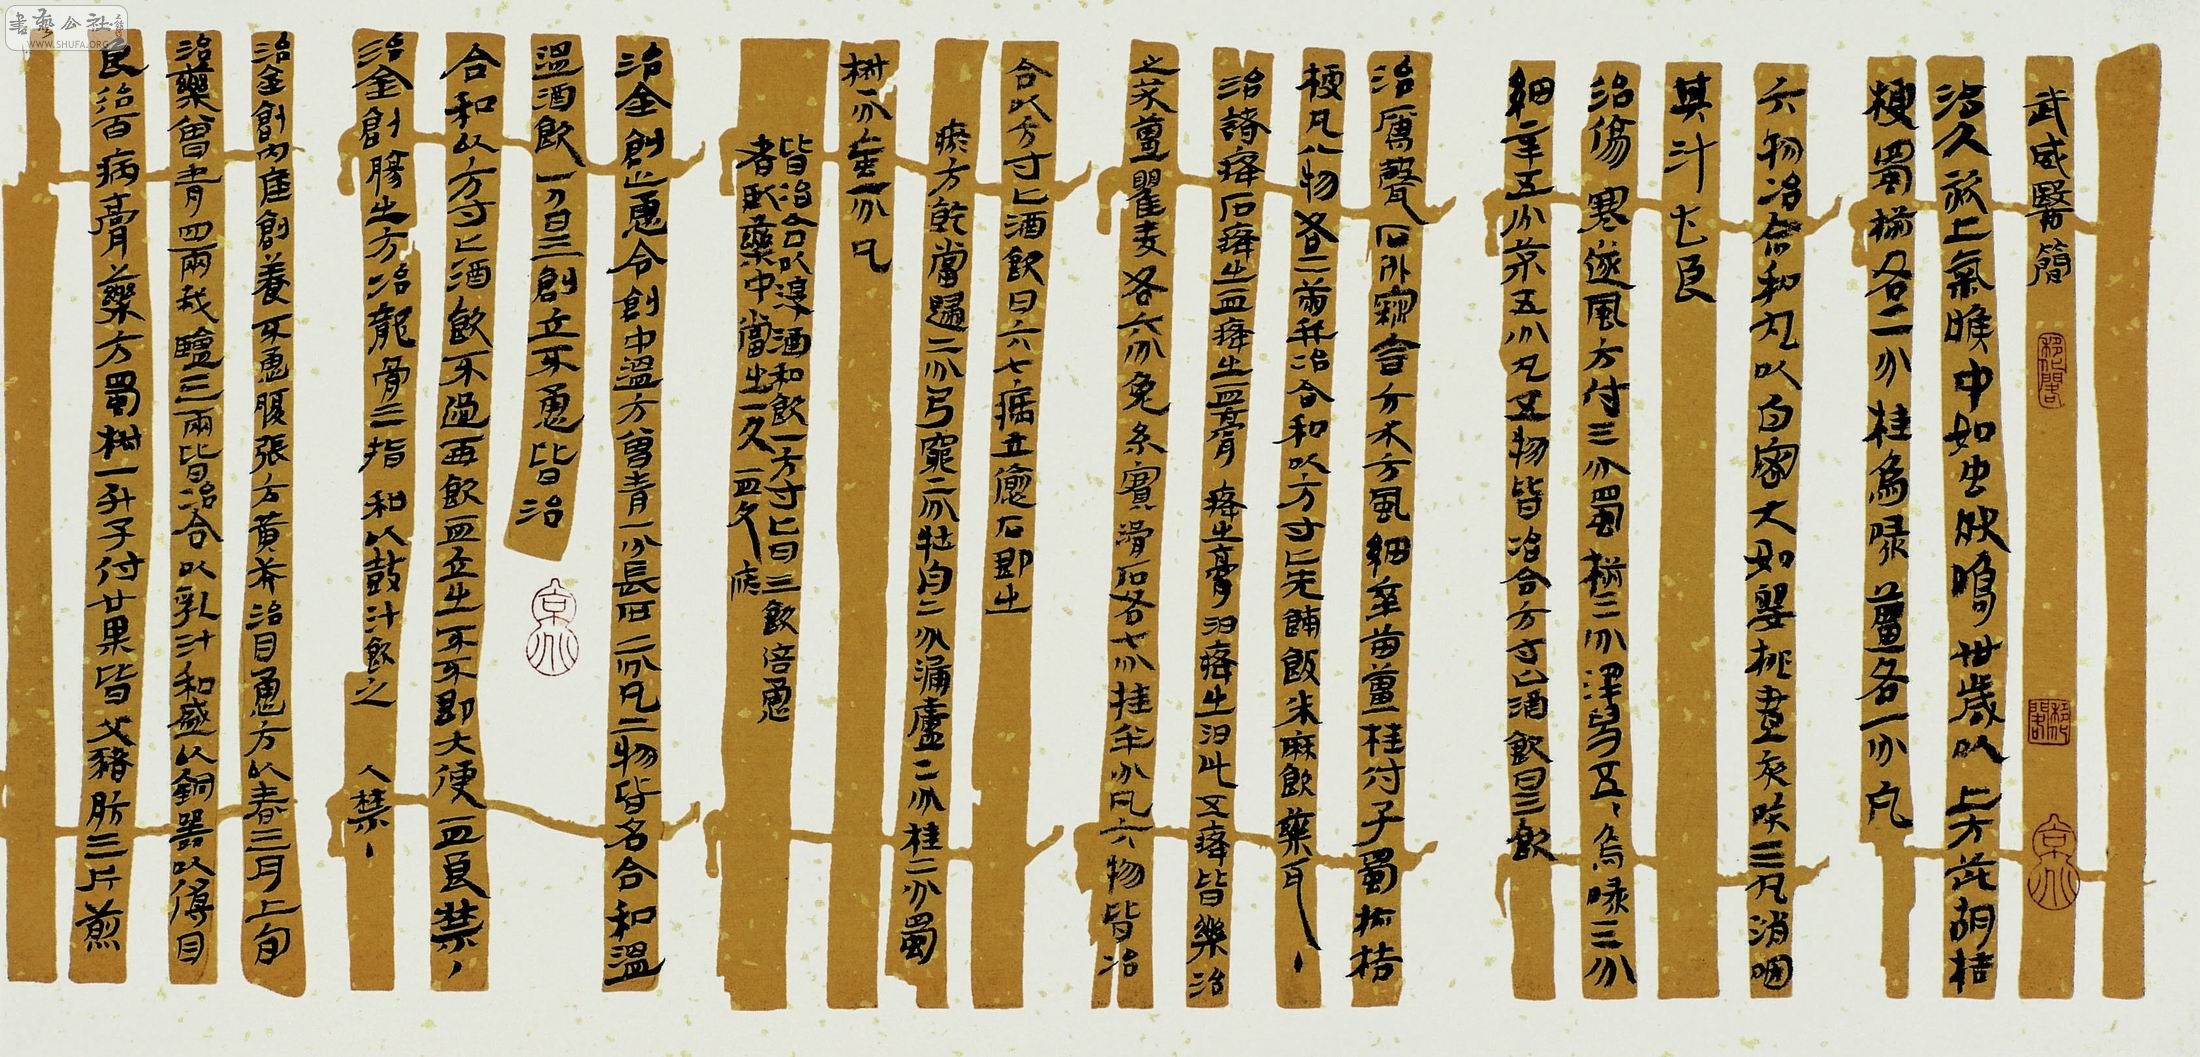 武威醫簡
治久欬上氣喉中如虫鳴狀卅歲以上方茈胡桔
梗蜀椒各二分桂烏喙薑各一分凡
六物冶合和丸以白密大如嬰桃晝夜吞三丸消咽
其汁甚良
治傷寒遂風方付子三分蜀椒三分澤舄五分烏喙三分
細辛五分朮五分凡五物皆冶合方寸匕酒飲日三飲
治 方風細辛 薑桂付子蜀椒桔
梗凡八物各二兩并冶合和以方寸匕先餔飯米麻飲藥耳
治諸癃石癃出血癃出膏癃出泔此五癃皆藥治
之朮薑瞿麥各六分兔糸實滑石各七分桂半分凡六物皆冶
合以方寸匕酒飲日六七病立愈石即出
瘀方乾當歸二分弓窮二分牡丹二分漏廬二分桂二分蜀
椒一分䖟一分凡
皆冶合以淳酒和飲一方寸匕日三飲倍恿
者臥藥中當出血久瘀
治金創止恿令創中溫方曾青一分長石二分凡二物皆冶合和溫
溫酒飲一刀日三創立不恿皆冶
合和以方寸匕酒飲不過再飲血立出不不即大便血良禁
治金創腸出方冶龍骨三指和以鼓汁飲之 禁
治金創內痙創養不恿腹張方黃芩治目恿方以春三月上旬
治藥曾青四兩戎鹽三兩皆冶合以乳汁和盛以銅器以傅目
良治百病膏藥方蜀椒一升付子廿果皆父豬肪三斤煎
書藝公社
WWW.SHUFA.ORG